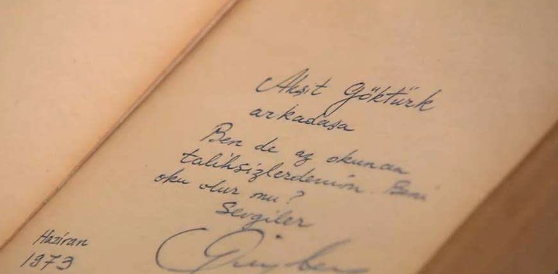 Akşit Göktürk
arkadaşa
Ben de az okunan
talihsizlerdenim. Beni
oku olur mu?
Sevgiler
Haziran
1973